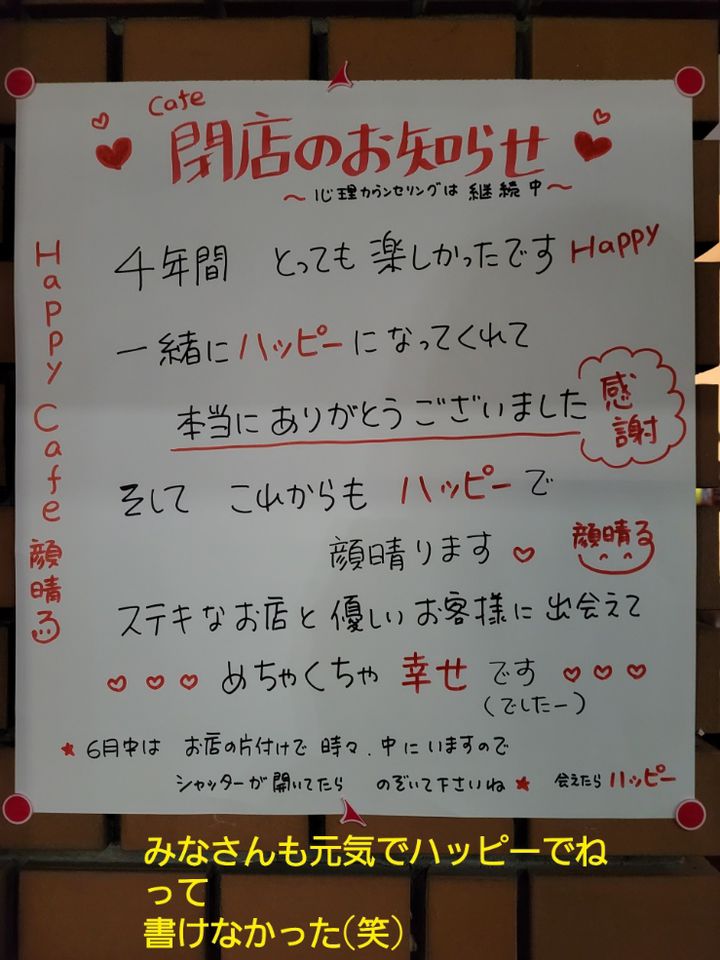 Cafe
閉店のお知らせ
〜心理カウンセリングは継続中〜
4年間 とっても楽しかったです Happy
一緒にハッピーになってくれて
本当にありがとうございました
感謝
そして これからも ハッピーで
顔晴ります
顔晴る
ステキなお店と優しいお客様に出会えて
めちゃくちゃ 幸せ です
(でしたー)
★6月中は お店の片付けで時々、中にいますので
シャッターが開いてたら のぞいて下さいね★ 会えたらハッピー
Happy Cafe 顔晴る
みなさんも元気でハッピーでね
って
書けなかった(笑)